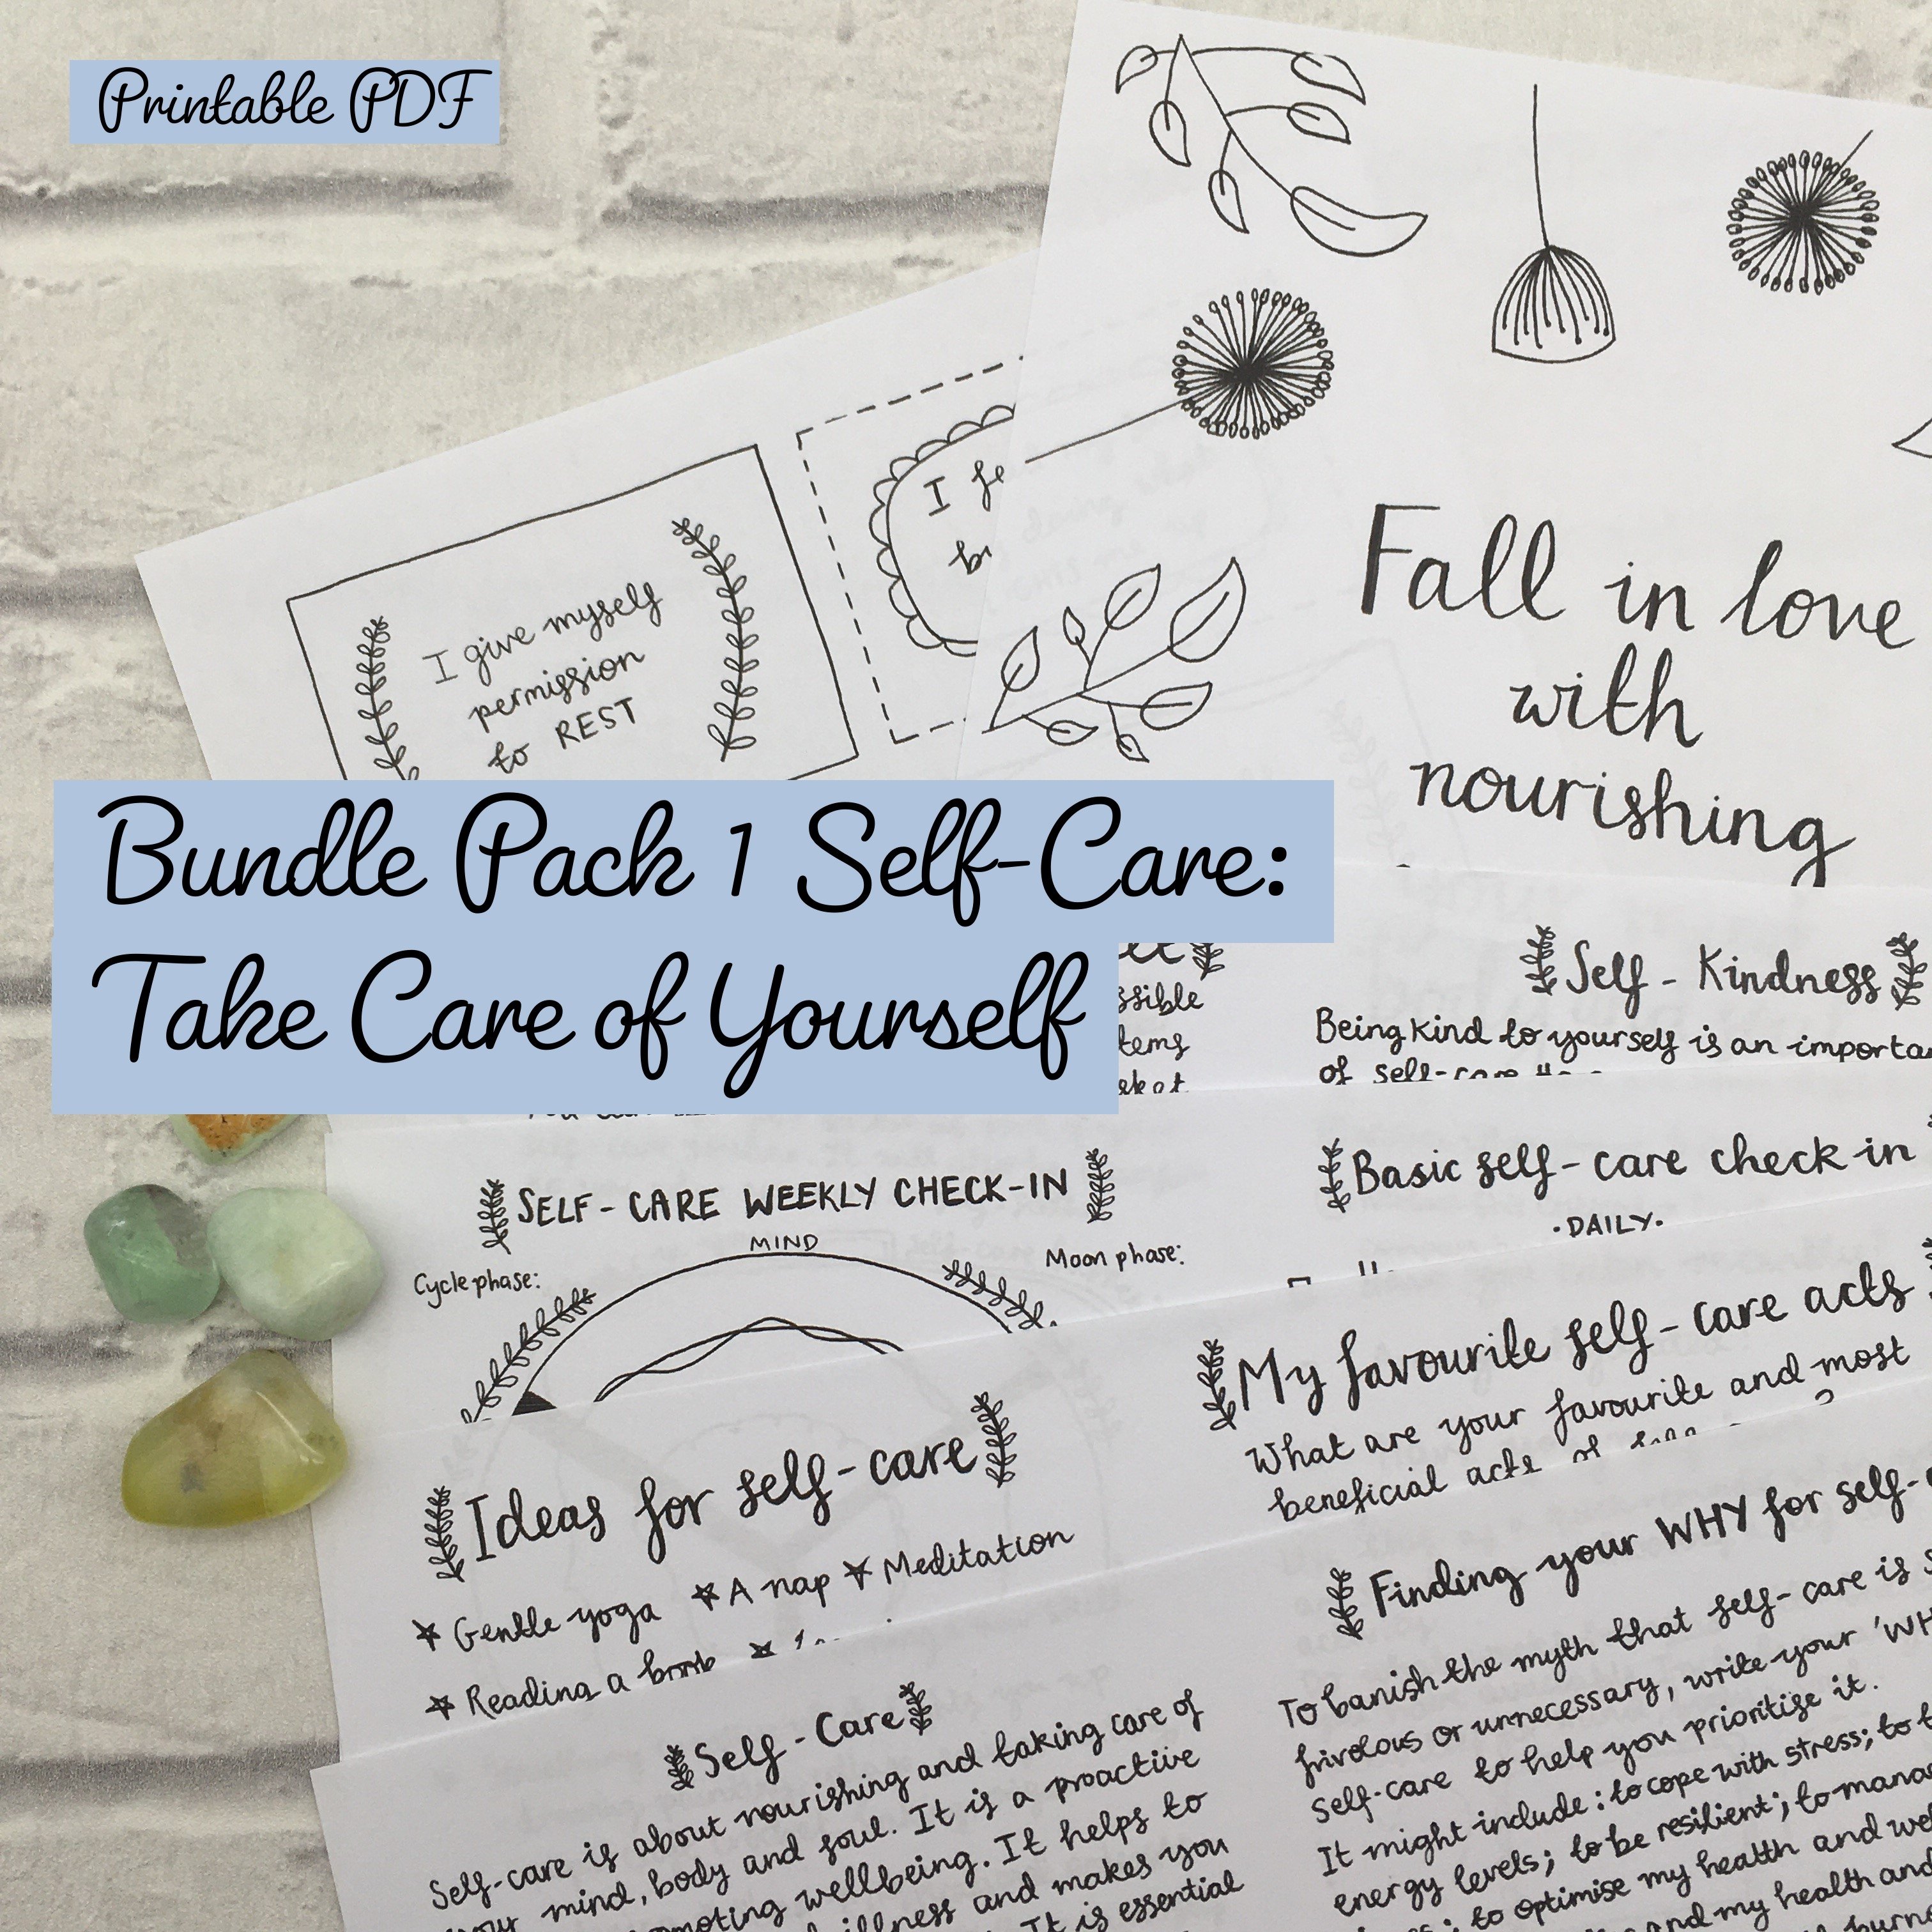 Printable PDF
I give myself
permission
to REST
I
Fall in love
with
nourishing
Bundle Pack 1 Self-Care:
Take Care of Yourself
Self - Kindness
Being kind to yourself is an
of self-care
SELF - CARE WEEKLY CHECK-IN
MIND
Cycle phase:
Moon phase:
Basic self - care check-in
·DAILY·
My favourite self - care acts
What are your favourite and most
beneficial acts of
Ideas for self - care
Gentle yoga A nap Meditation
Reading a book
Finding your WHY for self-
To banish the myth that self-care is
frivolous or unnecessary, write your
self-care to help you prioritise it.
It might include: to cope with stress; to
energy levels; to be resilient; to
to optimise my health and
and my health and
Self - Care
Self-care is about nourishing and taking care of
your mind, body and soul. It is a proactive
wellbeing. It helps to
illness and makes you
It is essential